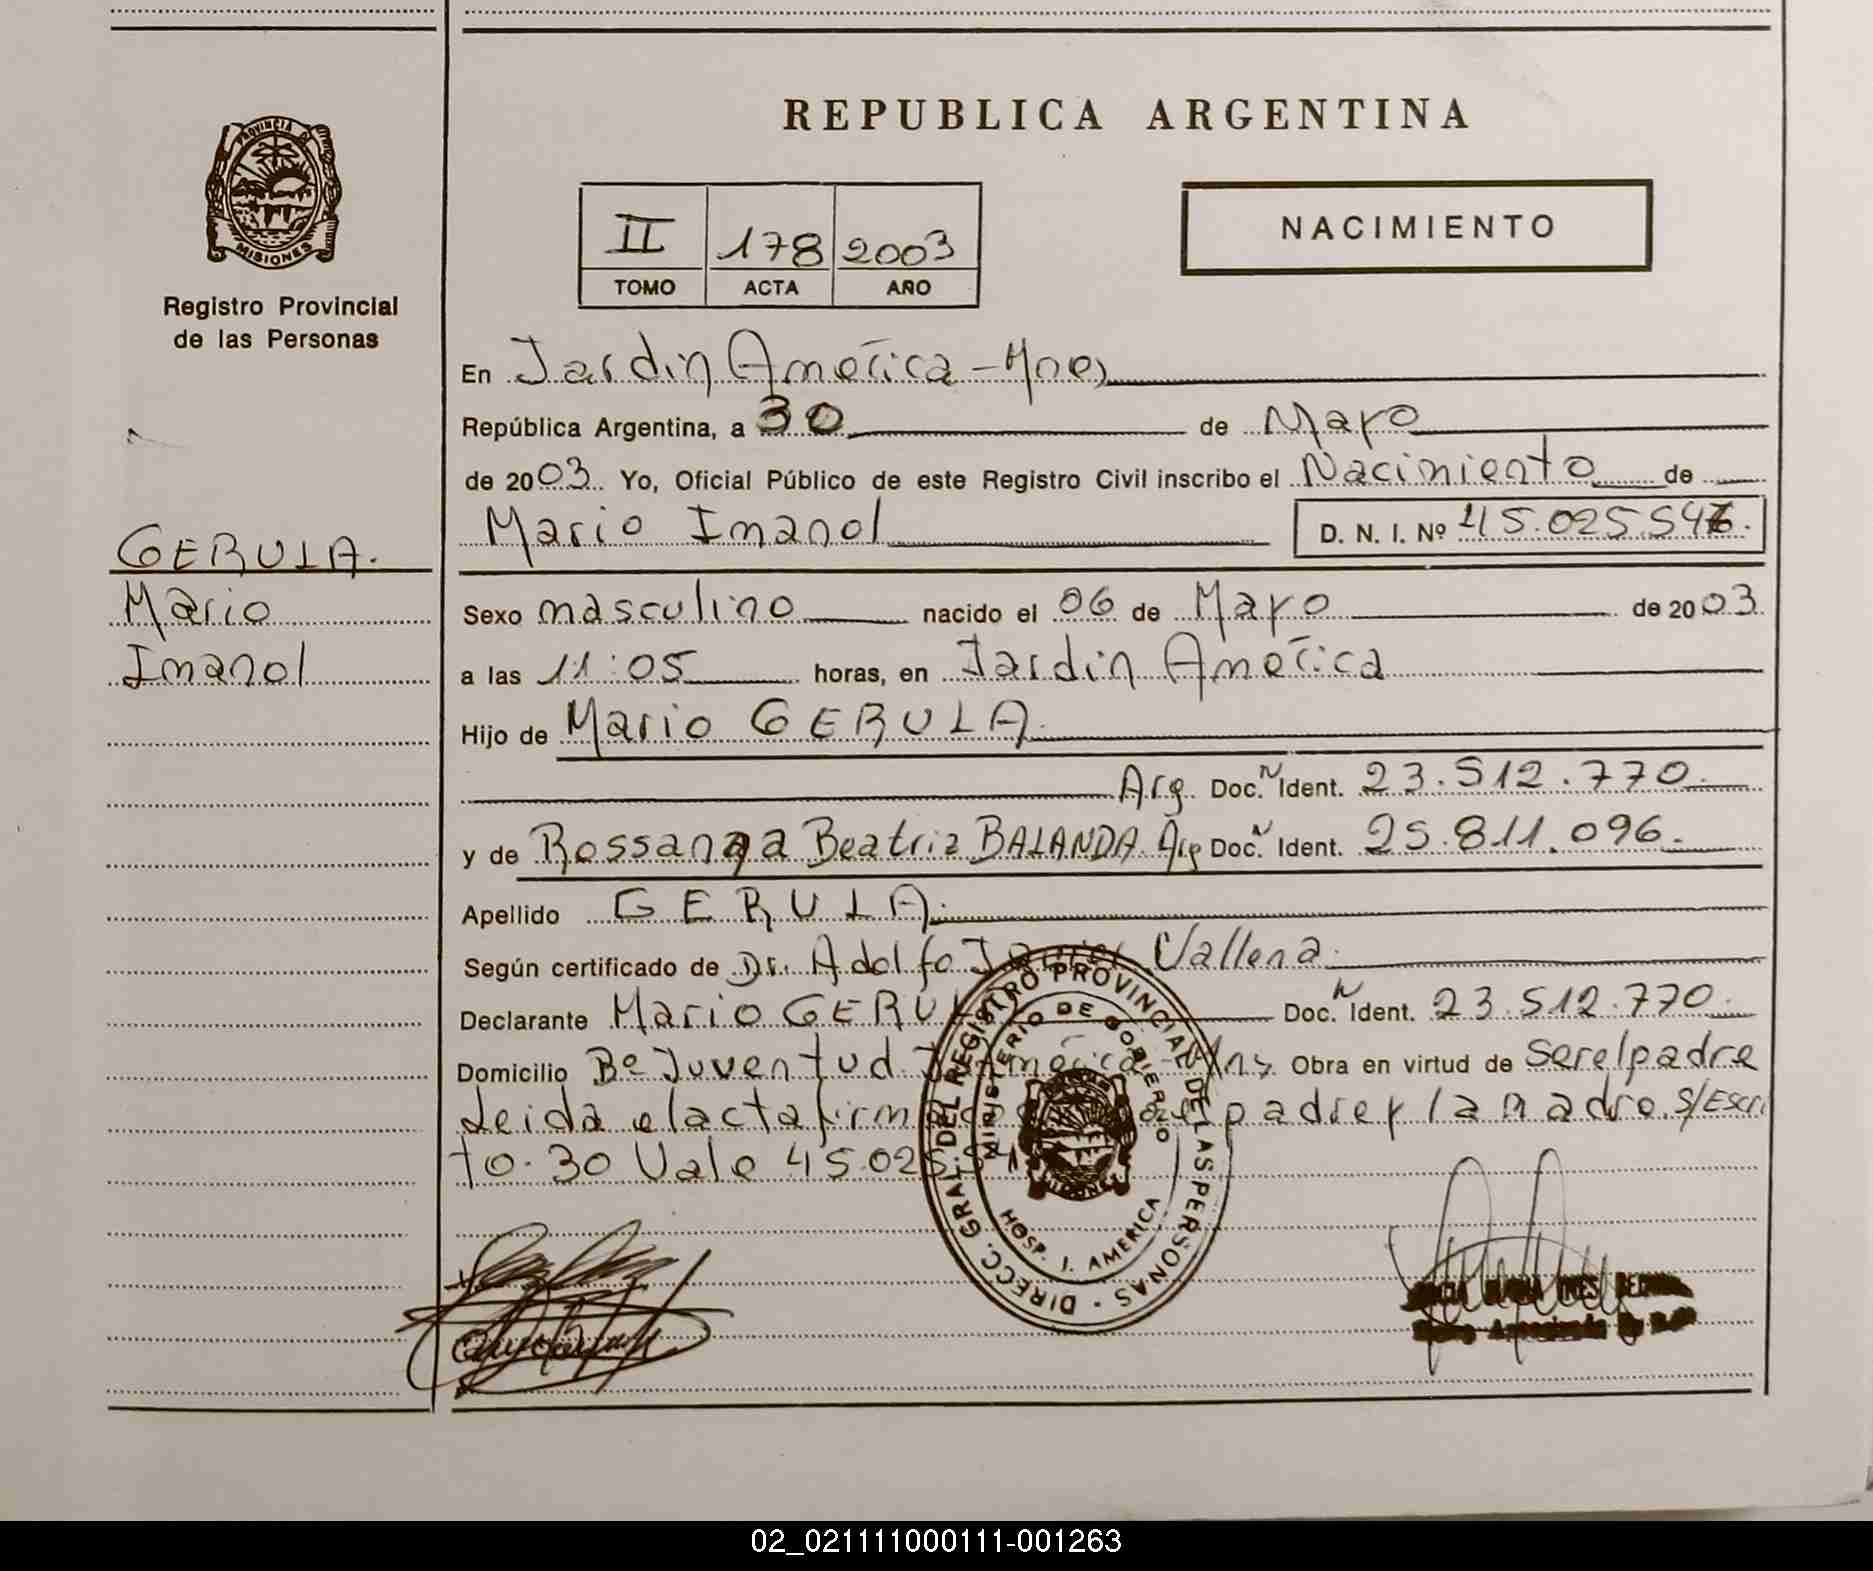 REPUBLICA ARGENTINA
PROVINCIA DE
MISIONES
Registro Provincial
de las Personas
II 178 2003
TOMO ACTA AÑO
NACIMIENTO
En Jardin América - Mnes
República Argentina, a 30 de Mayo
de 2003. Yo, Oficial Público de este Registro Civil inscribo el Nacimiento de
Mario Imanol D. N. I. Nº 45.025.54
GERULA.
Mario
Imanol
Sexo masculino nacido el 06 de Mayo de 2003
a las 11:05 horas, en Jardin América
Hijo de Mario GERULA.
Arg. Doc. N Ident. 23.512.770.
y de Rossana Beatriz BALANDA Arg Doc. N Ident. 25.811.096.
Apellido GERULA.
Según certificado de Dr. Adolfo Javier Vallena.
Declarante Mario GERULA Doc. N Ident. 23.512.770.
Domicilio Bº Juventud J. América - Mns Obra en virtud de ser el padre
Leida el acta firma el padre y la madre. S/Escri
to. 30 Vale 45.025.54
DIRECC. GRAL. DEL REGISTRO PROVINCIAL DE LAS PERSONAS
MINISTERIO DE GOBIERNO
HOSP. J. AMERICA
02_021111000111-001263